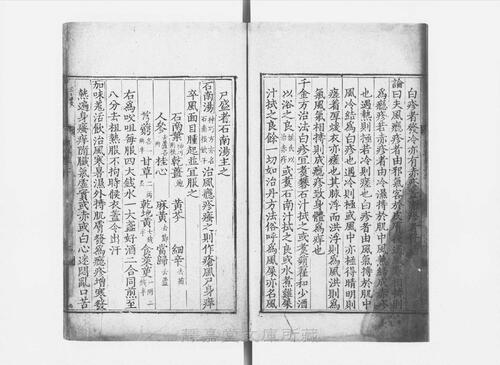 白疹者發冷亦有赤
論曰夫風癮疹者由邪氣客於皮膚
為癮疹若赤疹者由冷濕搏於肌中風熱結成
也遇熱則極若冷則瘥也白疹者由風氣搏於肌中
風冷結為白疹也遇冷則極或風中亦極得晴明則
瘥着厚煖衣亦瘥也其脉浮而洪浮則為風洪則為
氣風氣相搏則成癮疹致身體為痒也
千金方治法白疹宜煑石南汁拭之或煑蒴藋和少酒
以浴之 或煑石南汁拭之良或水煮雞屎
汁拭之良餘一切如治丹方法俗呼為風屎亦名風
尸盛者石南湯主之
石南湯 治風癮疹瘙之則作瘡風尸身痒
卒風面目腫起並宜服之
石南葉 乾薑 黃芩 細辛
人參 桂心 麻黃 當歸
芎藭 甘草 乾地黃 食茱萸
右為㕮咀每服四大錢水一大盞好酒二合同煎至
八分去柤熱服不拘時候衣蓋令出汗
加味羗活飲治風寒暑濕外搏肌膚發為癮疹增寒發
熱遍身瘙痒隨臟氣虛實或赤或白心迷悶亂口苦
靜嘉堂文庫所藏